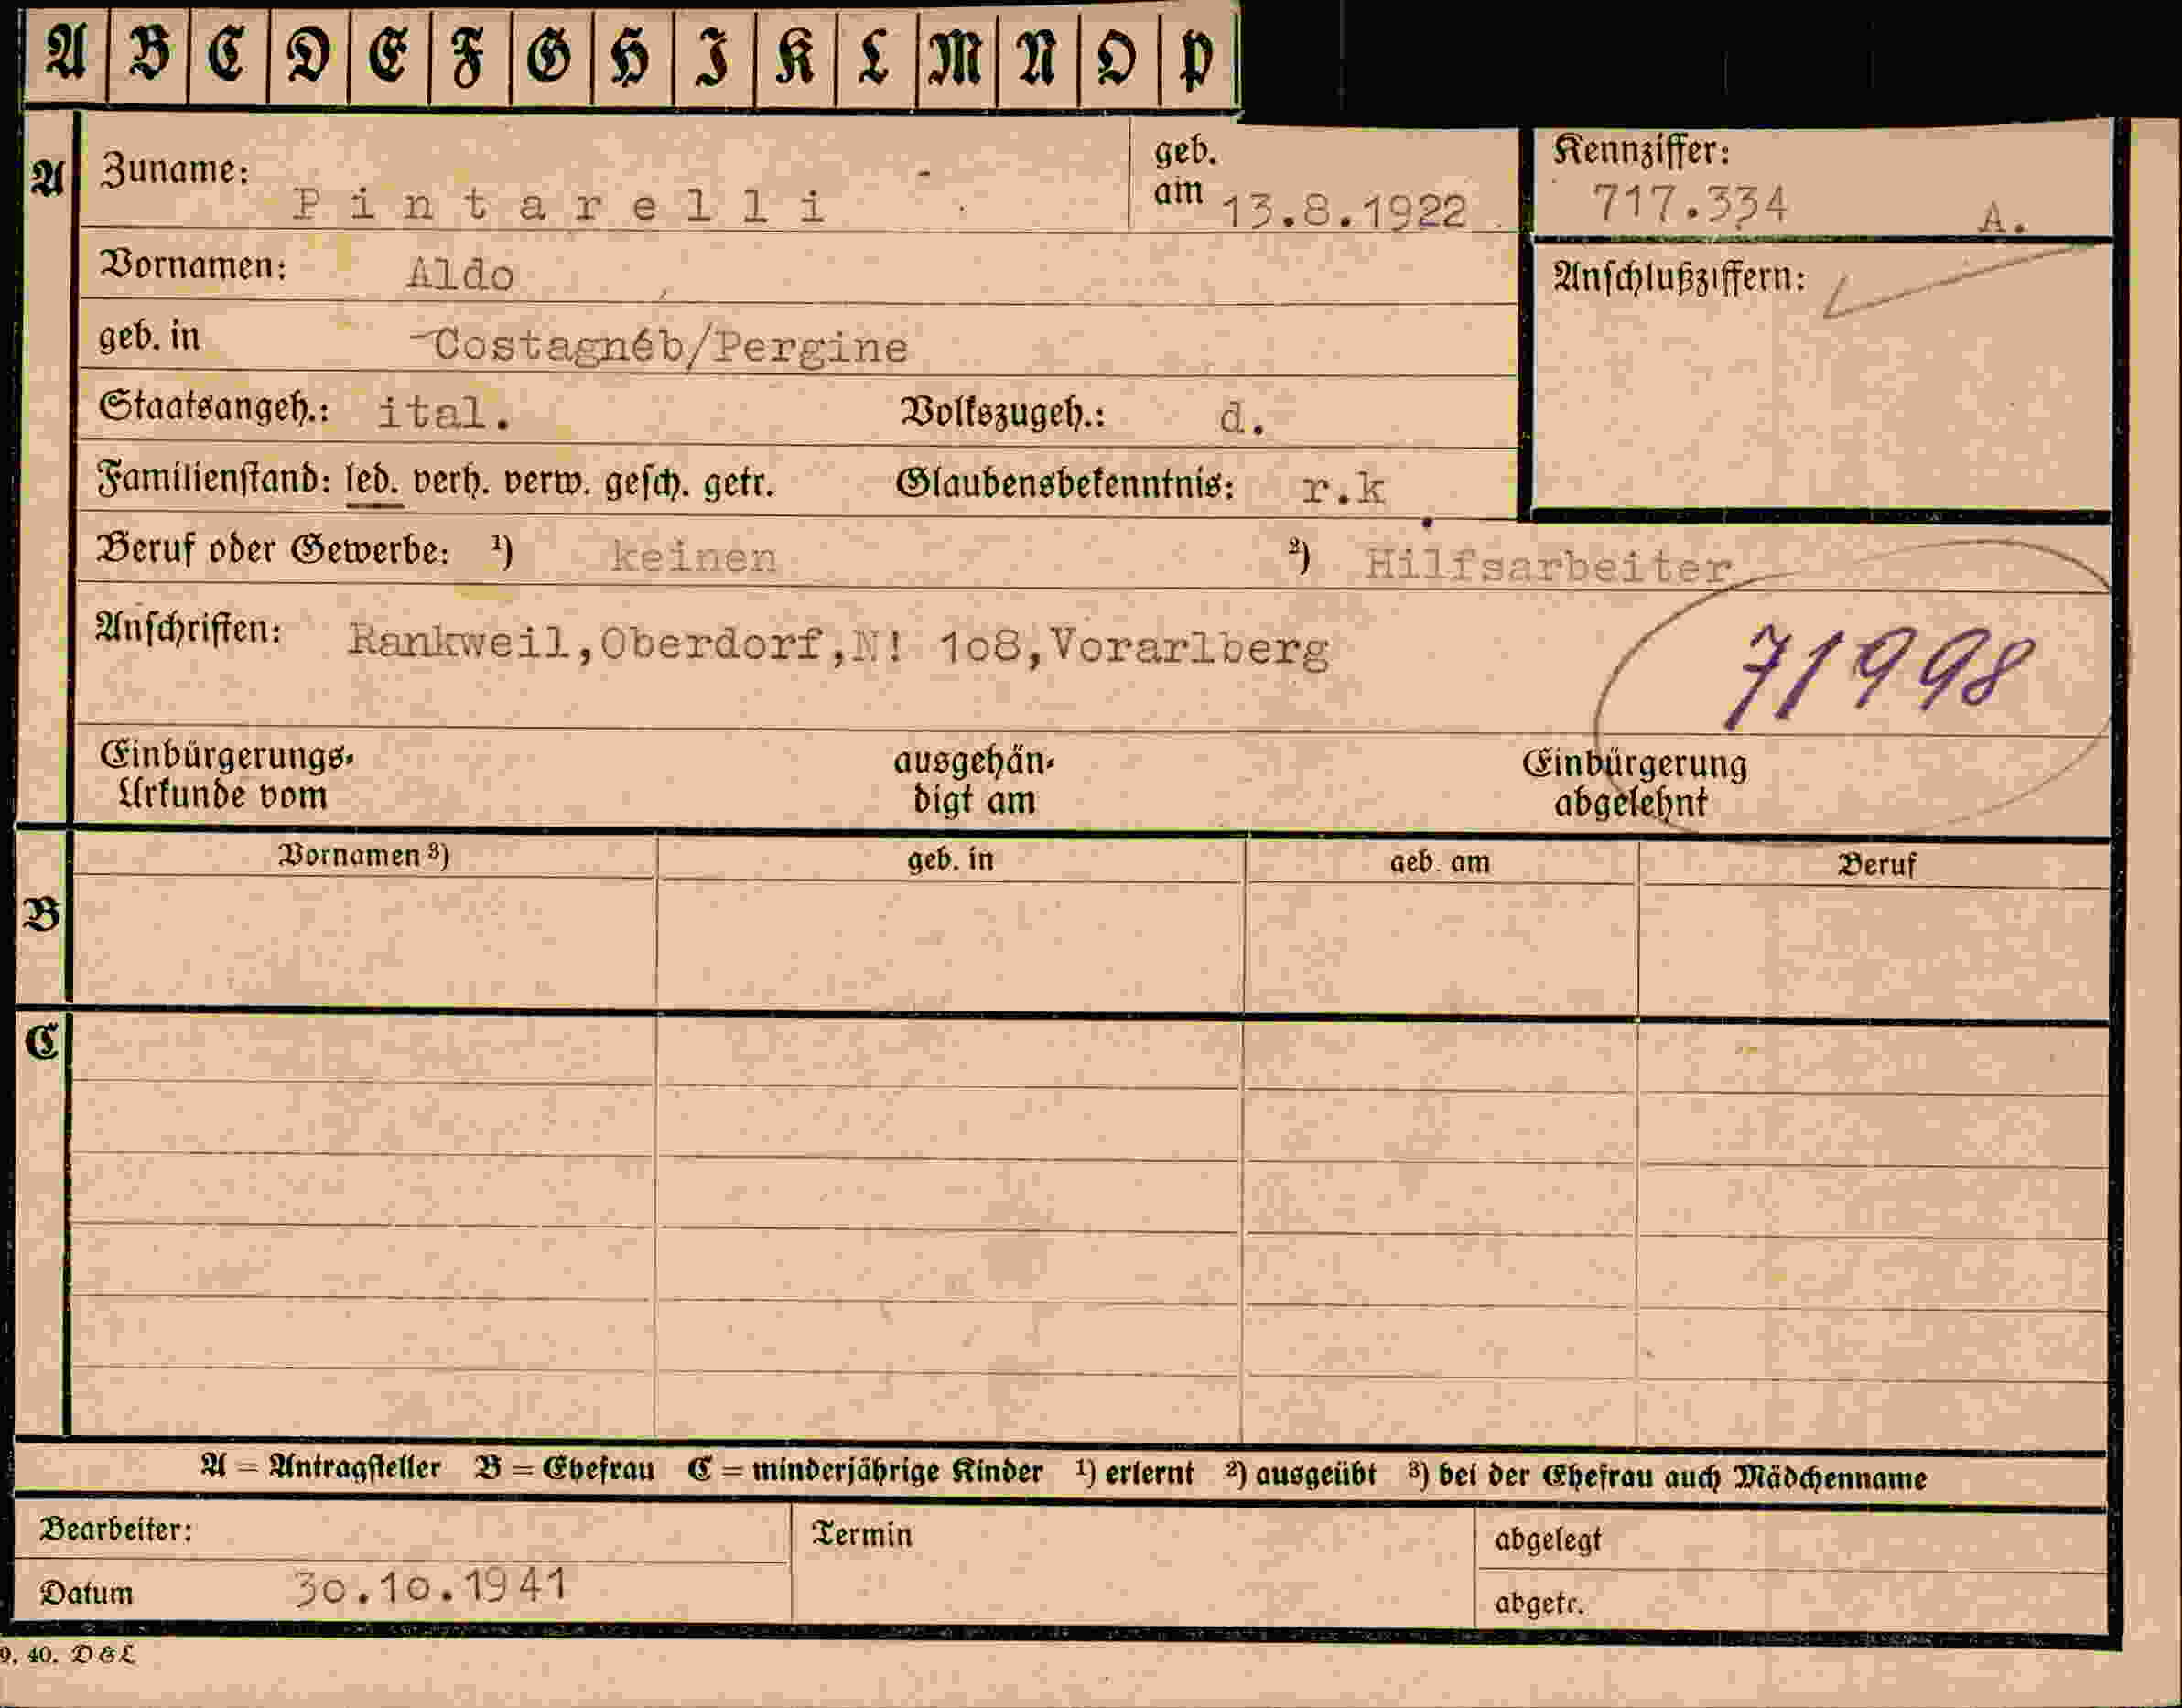 A B C D E F G H I K L M N O P
A
Zuname: Pintarelli
geb. am 13.8.1922
Kennziffer: 717.334 A.
Vornamen: Aldo
Anschlußziffern:
geb. in Costagnéb/Pergine
Staatsangeh.: ital. Volkszugeh.: d.
Familienstand: led. verh. verw. gesch. getr. Glaubensbekenntnis: r.k
Beruf oder Gewerbe: ¹) keinen ²) Hilfsarbeiter
Anschriften: Rankweil,Oberdorf,N! 1o8,Vorarlberg
71998
Einbürgerungs- ausgehän- Einbürgerung
Urkunde vom digt am abgelehnt
Vornamen ³) geb. in geb. am Beruf
B
C
A = Antragsteller B = Ehefrau C = minderjährige Kinder ¹) erlernt ²) ausgeübt ³) bei der Ehefrau auch Mädchenname
Bearbeiter: Termin abgelegt
Datum 3o.1o.1941 abgetr.
9. 40. D & L